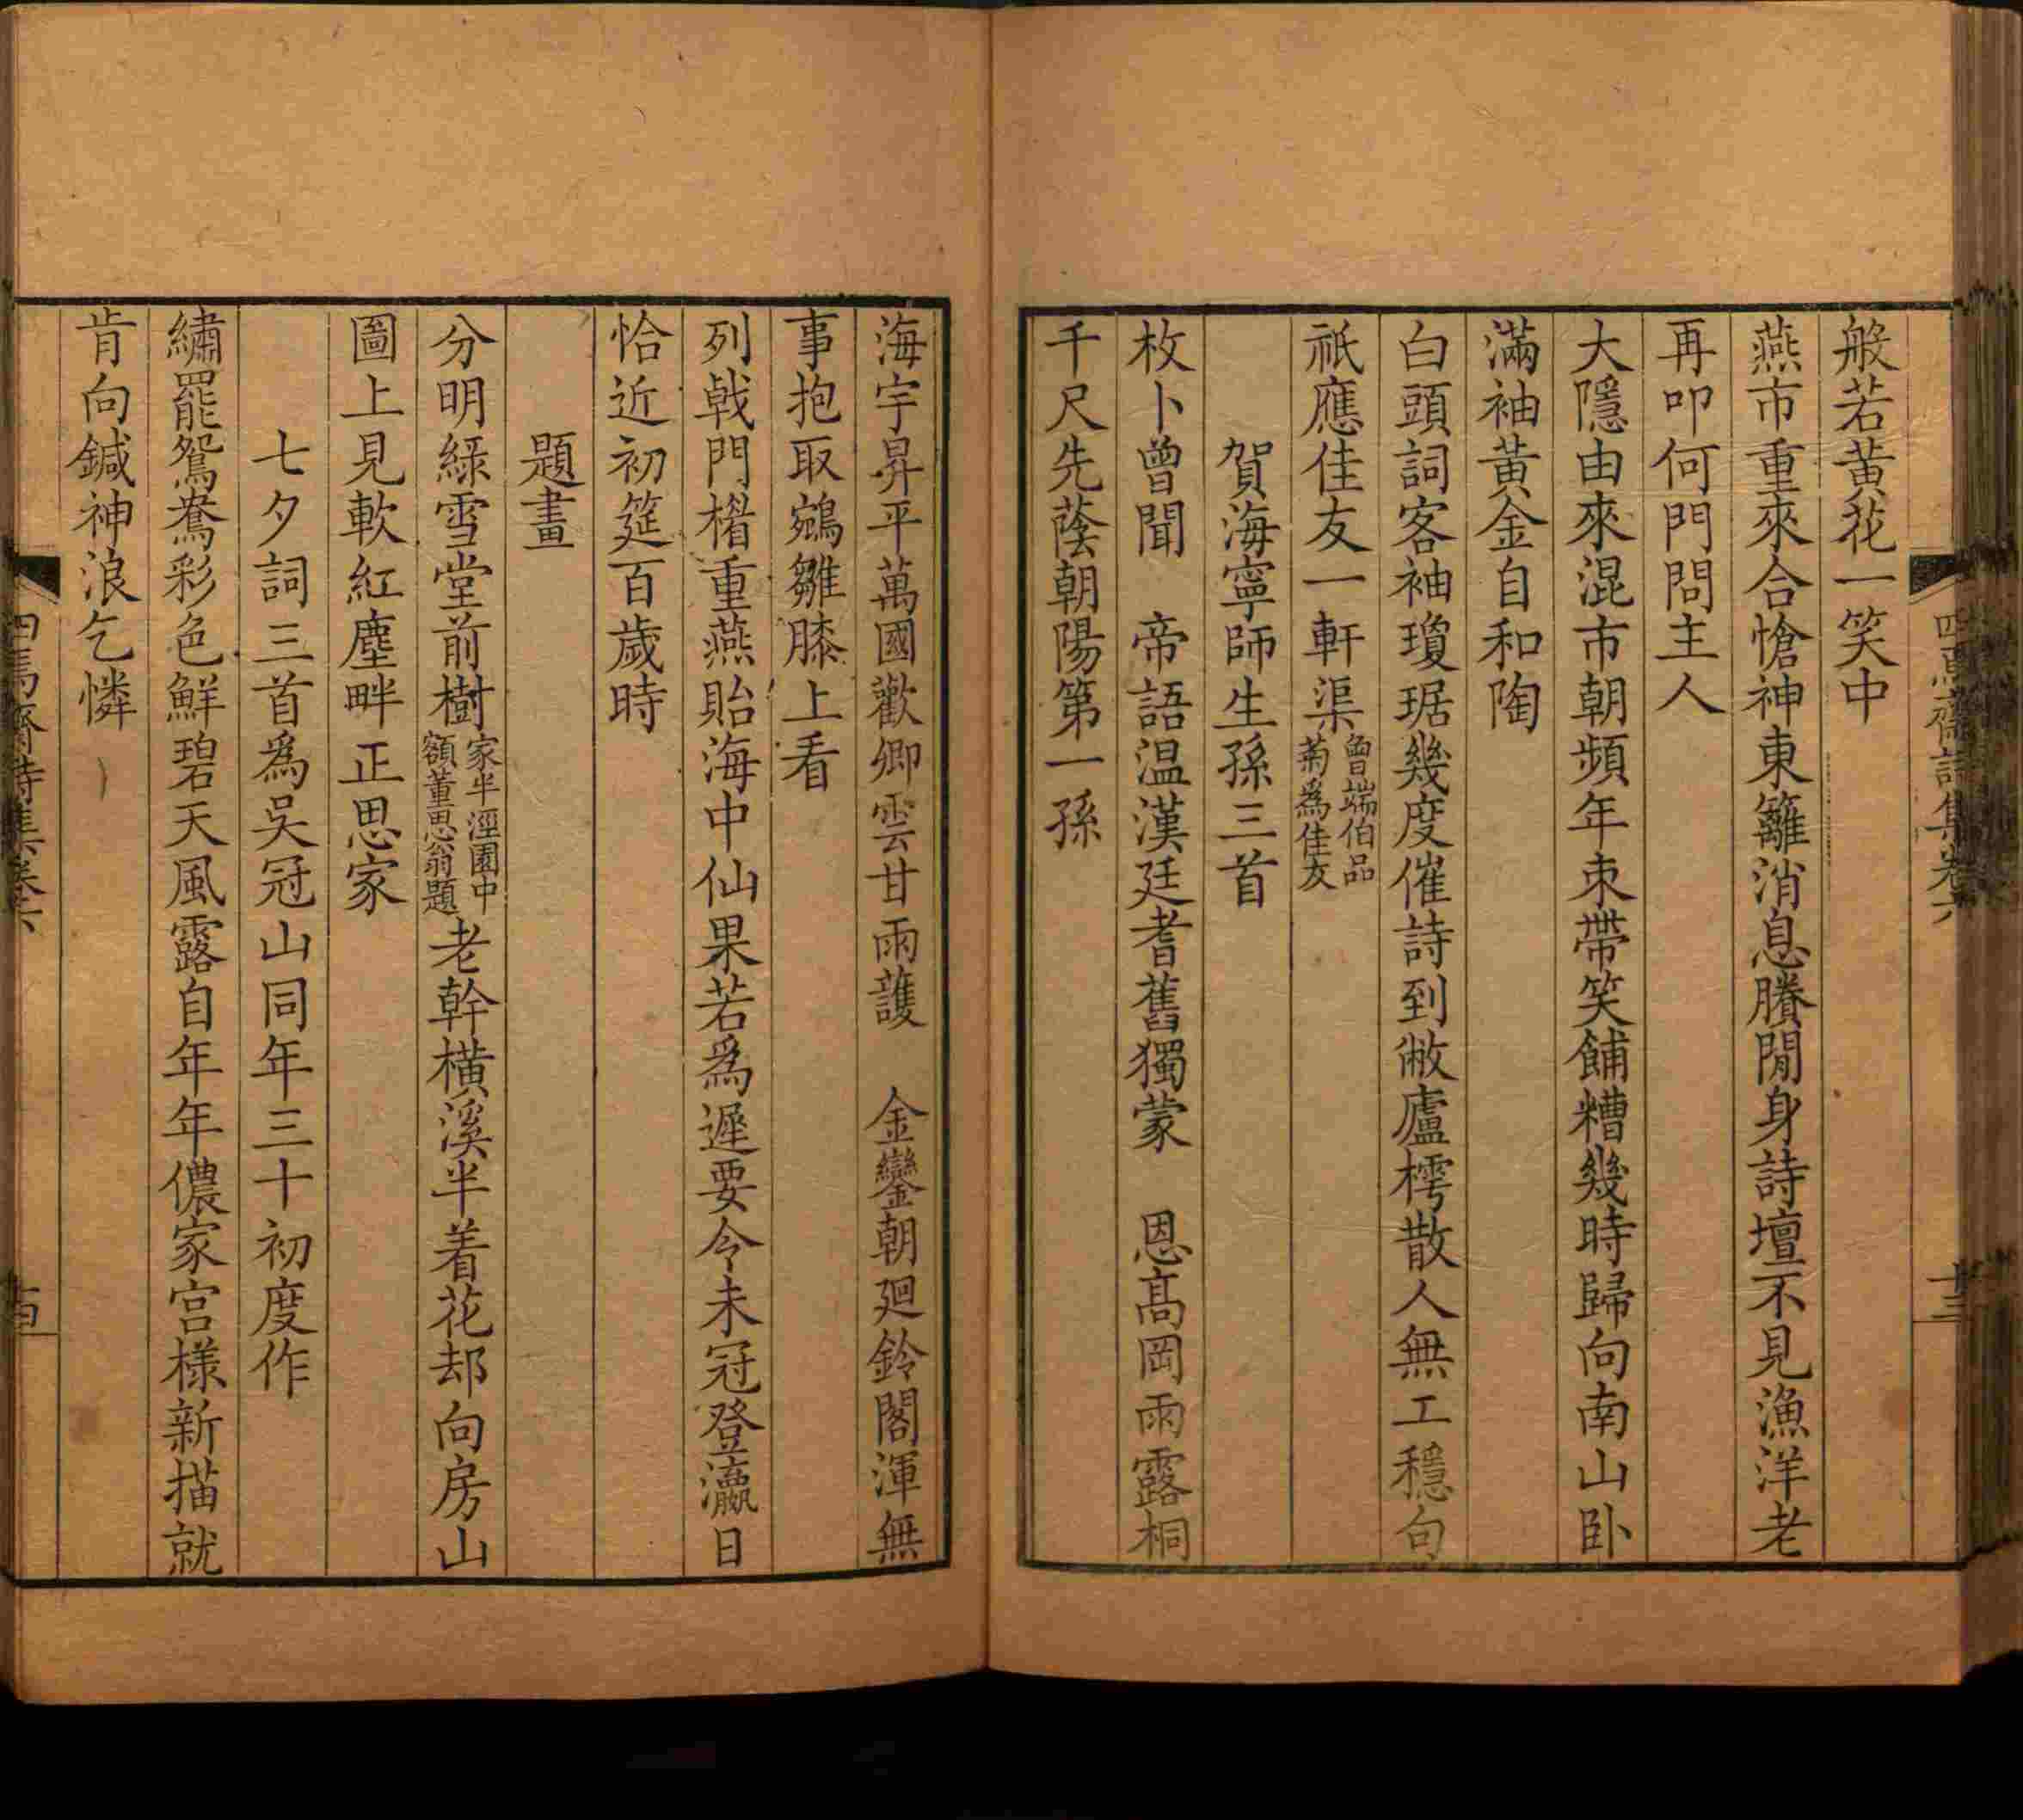 般若黃花一笑中
燕市重來合愴神東籬消息賸閒身詩壇不見漁洋老
再叩何門問主人
大隱由來混市朝頻年束帶笑餔糟幾時歸向南山卧
滿袖黃金自和陶
白頭詞客袖瓊琚幾度催詩到敝廬樗散人無工穩句
祇應佳友一軒渠曾端伯品菊為佳友
賀海寧師生孫三首
枚卜曾聞　帝語温漢廷耆舊獨蒙　恩高岡雨露桐
千尺先蔭朝陽第一孫
海宇昇平萬國歡卿雲甘雨護　金鑾朝廻鈴閣渾無
事抱取鵷雛膝上看
列戟門楣重燕貽海中仙果若爲遲要令未冠登瀛日
恰近初筵百歲時
題畫
分明綠雪堂前樹家半涇園中額董思翁題老幹橫溪半着花却向房山
圖上見軟紅塵畔正思家
七夕詞三首爲吳冠山同年三十初度作
繡罷鴛鴦彩色鮮碧天風露自年年儂家宫樣新描就
肯向鍼神浪乞憐